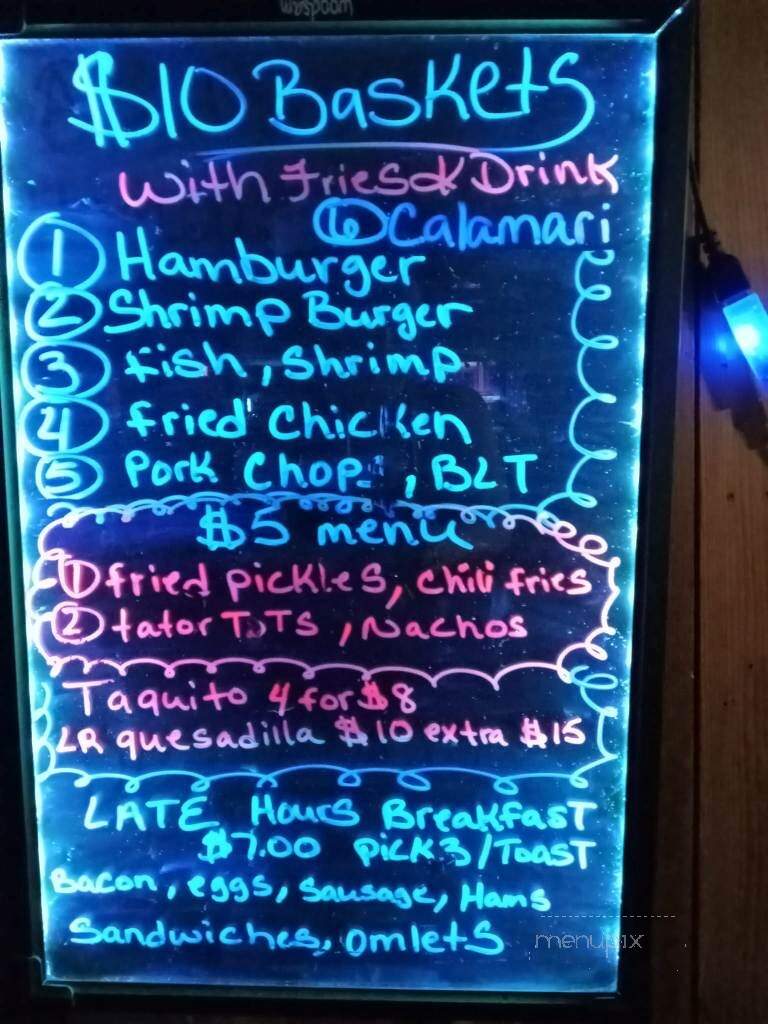 woodsam
$10 Baskets
With Fries & Drink
6 Calamari
1 Hamburger
2 Shrimp Burger
3 fish, Shrimp
4 fried Chicken
5 Pork Chop, BLT
$5 menu
1 fried pickles, chili fries
2 tator TOTS, Nachos
Taquito 4 for $8
LR quesadilla $10 extra $15
LATE Hours BreakfasT
$7.00 PICK 3/ToasT
Bacon, eggs, sausage, Hams
Sandwiches, omlets
menupix